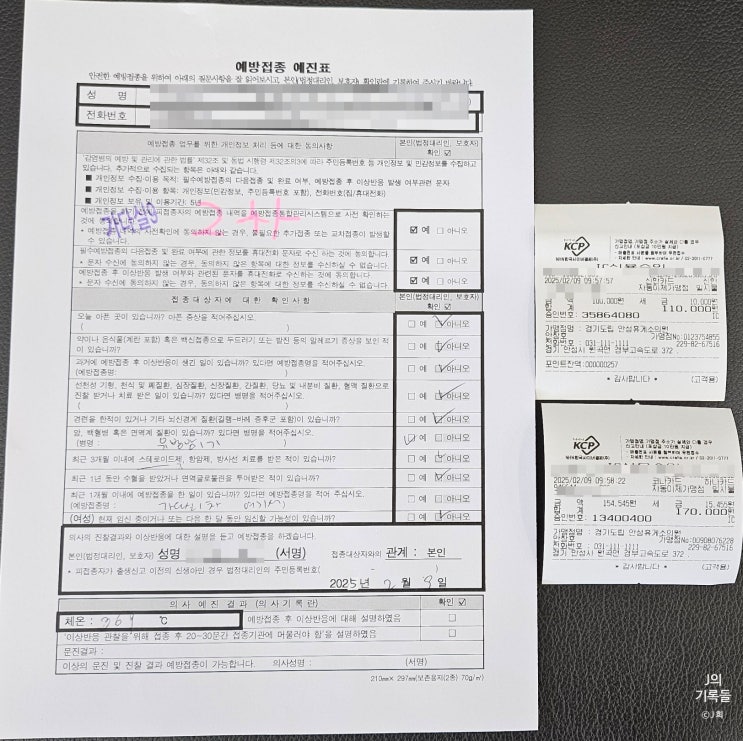 예방접종 예진표
안전한 예방접종을 위하여 아래의 질문사항을 잘 읽어보시고, 본인(법정대리인, 보호자) 확인란에 기록하여 주시기 바랍니다.
성 명
전화번호
예방접종 업무를 위한 개인정보 처리 등에 대한 동의사항
본인(법정대리인, 보호자) 확인 ☑
「감염병의 예방 및 관리에 관한 법률」 제32조 및 동법 시행령 제32조의3에 따라 주민등록번호 등 개인정보 및 민감정보를 수집하고 있습니다. 추가적으로 수집되는 항목은 아래와 같습니다.
■ 개인정보 수집·이용 목적: 필수예방접종의 다음접종 및 완료 여부, 예방접종 후 이상반응 발생 여부관련 문자
■ 개인정보 수집·이용 항목: 개인정보(민감정보, 주민등록번호 포함), 전화번호(집/휴대전화)
■ 개인정보 보유 및 이용기간: 5년
2차
예방접종을 피접종자의 예방접종 내역을 예방접종통합관리시스템으로 사전 확인하는 것에
• 예방접종 사전확인에 동의하지 않는 경우, 불필요한 추가접종 또는 교차접종이 발생할 수 있습니다.
☑ 예 □ 아니오
필수예방접종의 다음접종 및 완료 여부에 관한 정보를 휴대전화 문자로 수신 하는 것에 동의합니다.
• 문자 수신에 동의하지 않는 경우, 동의하지 않은 항목에 대한 정보를 수신하실 수 없습니다.
☑ 예 □ 아니오
예방접종 후 이상반응 발생 여부와 관련된 문자를 휴대전화로 수신 하는 것에 동의합니다.
• 문자 수신에 동의하지 않는 경우, 동의하지 않은 항목에 대한 정보를 수신하실 수 없습니다.
☑ 예 □ 아니오
접종대상자에 대한 확인사항
본인(법정대리인, 보호자) 확인 ☑
오늘 아픈 곳이 있습니까? 아픈 증상을 적어주십시오.
( )
□ 예 □ 아니오
약이나 음식물(계란 포함) 혹은 백신접종으로 두드러기 또는 발진 등의 알레르기 증상을 보인 적이 있습니까?
□ 예 □ 아니오
과거에 예방접종 후 이상반응이 생긴 일이 있습니까? 있다면 예방접종명을 적어주십시오.
(예방접종명: )
□ 예 □ 아니오
선천성 기형, 천식 및 폐질환, 심장질환, 신장질환, 간질환, 당뇨 및 내분비 질환, 혈액 질환으로 진찰 받거나 치료 받은 일이 있습니까? 있다면 병명을 적어주십시오.
( )
□ 예 □ 아니오
경련을 한적이 있거나 기타 뇌신경계 질환(길랭-바레 증후군 포함)이 있습니까?
□ 예 □ 아니오
암, 백혈병 혹은 면역계 질환이 있습니까? 있다면 병명을 적어주십시오.
(병명 : )
□ 예 □ 아니오
최근 3개월 이내에 스테로이드제, 항암제, 방사선 치료를 받은 적이 있습니까?
□ 예 □ 아니오
최근 1년 동안 수혈을 받았거나 면역글로불린을 투여받은 적이 있습니까?
□ 예 □ 아니오
최근 1개월 이내에 예방접종을 한 일이 있습니까? 있다면 예방접종명을 적어 주십시오.
(예방접종명: )
□ 예 □ 아니오
(여성) 현재 임신 중이거나 또는 다음 한 달 동안 임신할 가능성이 있습니까?
□ 예 □ 아니오
의사의 진찰결과와 이상반응에 대한 설명을 듣고 예방접종을 하겠습니다.
본인(법정대리인, 보호자) 성명 (서명) 접종대상자와의 관계 : 본인
• 피접종자가 출생신고 이전의 신생아인 경우 법정대리인의 주민등록번호( - )
2025년 2월 9일
의사 예진 결과 (의사기록란)
확인 ☑
체온 : 36.4 ℃
예방접종 후 이상반응에 대해 설명하였음
□
'이상반응 관찰을 위해 접종 후 20-30분간 접종기관에 머물러야 함'을 설명하였음
□
문진결과 :
이상의 문진 및 진찰 결과 예방접종이 가능합니다. 의사성명 : (서명)
210mm× 297mm(보존용지(2종) 70g/㎡)
KCP
NHN한국사이버결제(주)
2025/02/09 09:57:57 신한카드
일시불
금 액 100,000원 세 금 10,000원
합 계 110,000원
승인번호: 35864080
가맹점명 : 경기도립 안성휴게소의원
가맹점No:0123754855
031-111-1111 229-82-67516
경기 안성시 원곡면 경부고속도로 372
포인트잔액:000000257
* 감사합니다 * (고객용)
KCP
NHN한국사이버결제(주)
2025/02/09 09:58:22 코나카드 하나카드
일시불
금 액 154,545원 세 금 15,455원
합 계 170,000원
승인번호: 13400400
가맹점명 : 경기도립 안성휴게소의원
가맹점No:00908076228
031-111-1111 229-82-67516
경기 안성시 원곡면 경부고속도로 372
* 감사합니다 * (고객용)
J의
기록들
©J획